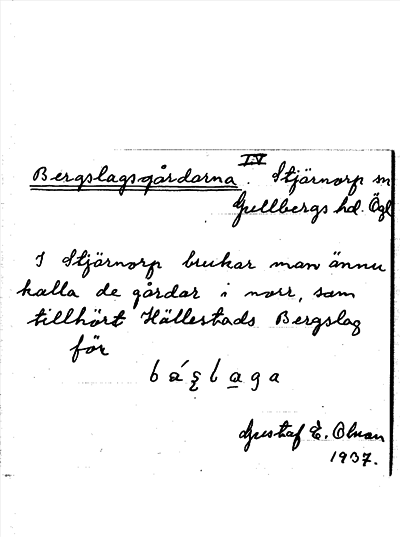 IV
Bergslagsgårdarna. Stjärnorp sn
Gullbergs hd. Ögl
I Stjärnorp brukar man ännu
kalla de gårdar i norr, som
tillhört Hällestads Bergslag
för
Gustaf E. Olson
1937.